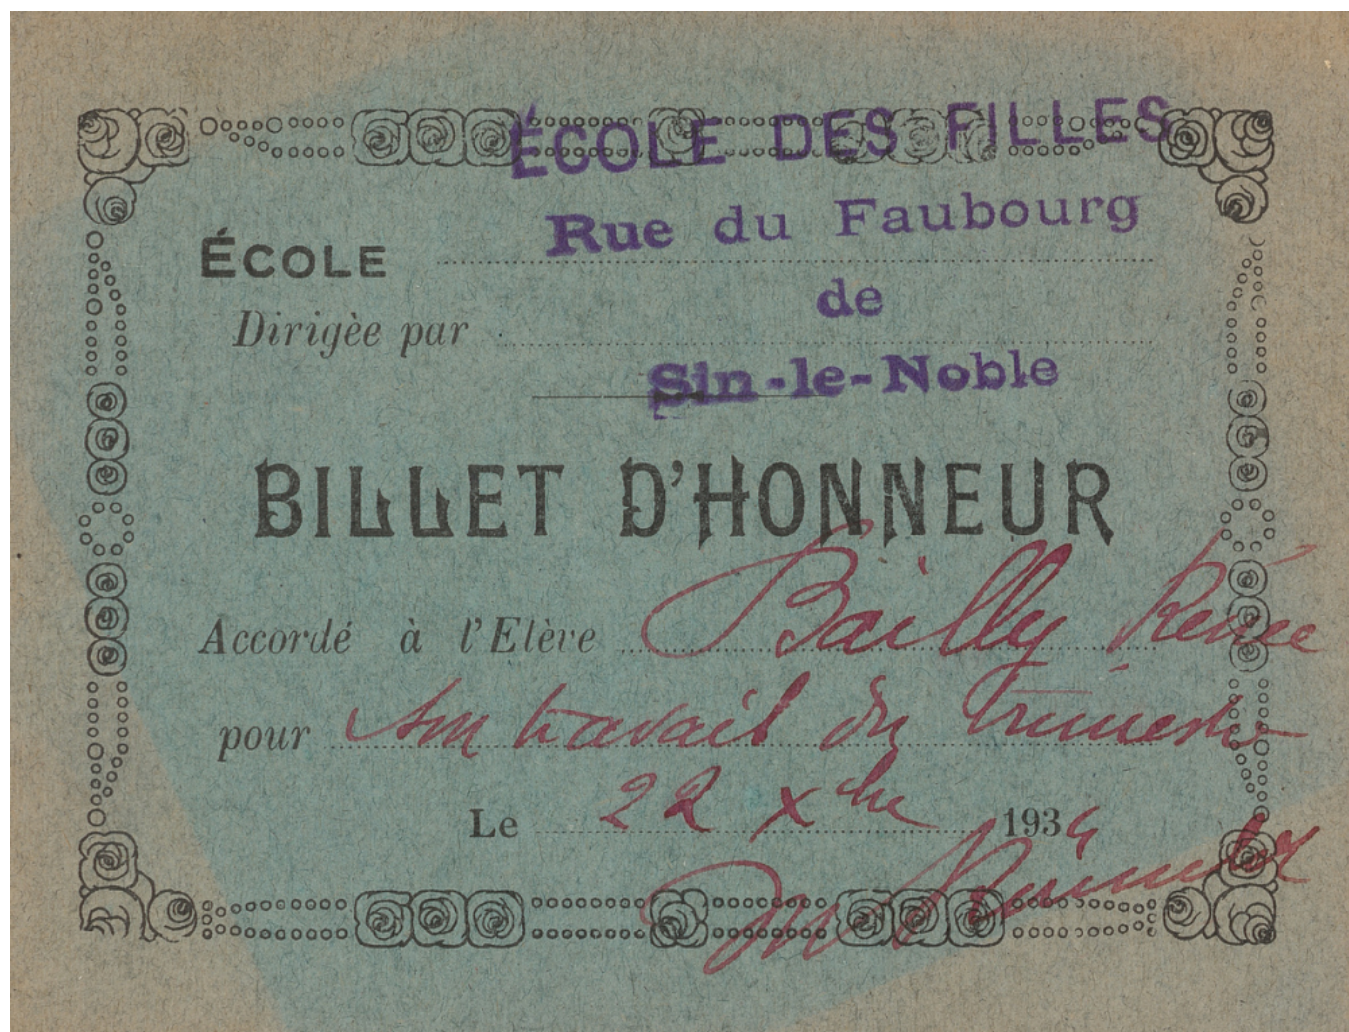 ÉCOLE DES FILLES
Rue du Faubourg
ÉCOLE
de
Dirigèe par
Sin-le-Noble
BILLET D'HONNEUR
Accordé à l'Elève Bailly Renée
pour son travail du trimestre
Le 22 Xbre 1934